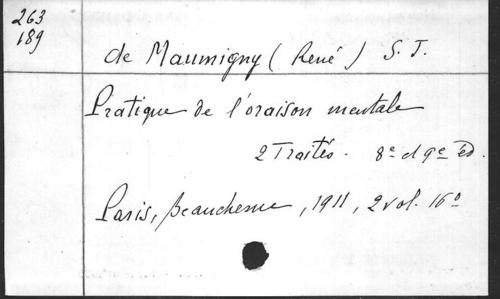 263
189
de Maumigny ( René ) S. J.
Pratique de l'oraison mentale
2 Traités. 8e et 9e éd.
Paris, Beauchesne, 1911, 2 vol. 16°